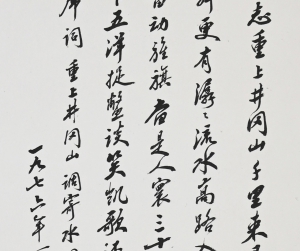 志重上井冈山千里来
更有潺々流水高路入
雷动旌旗奋是人寰三十
五洋捉鳖谈笑凯歌还
席词重上井冈山调寄水
一九七六年